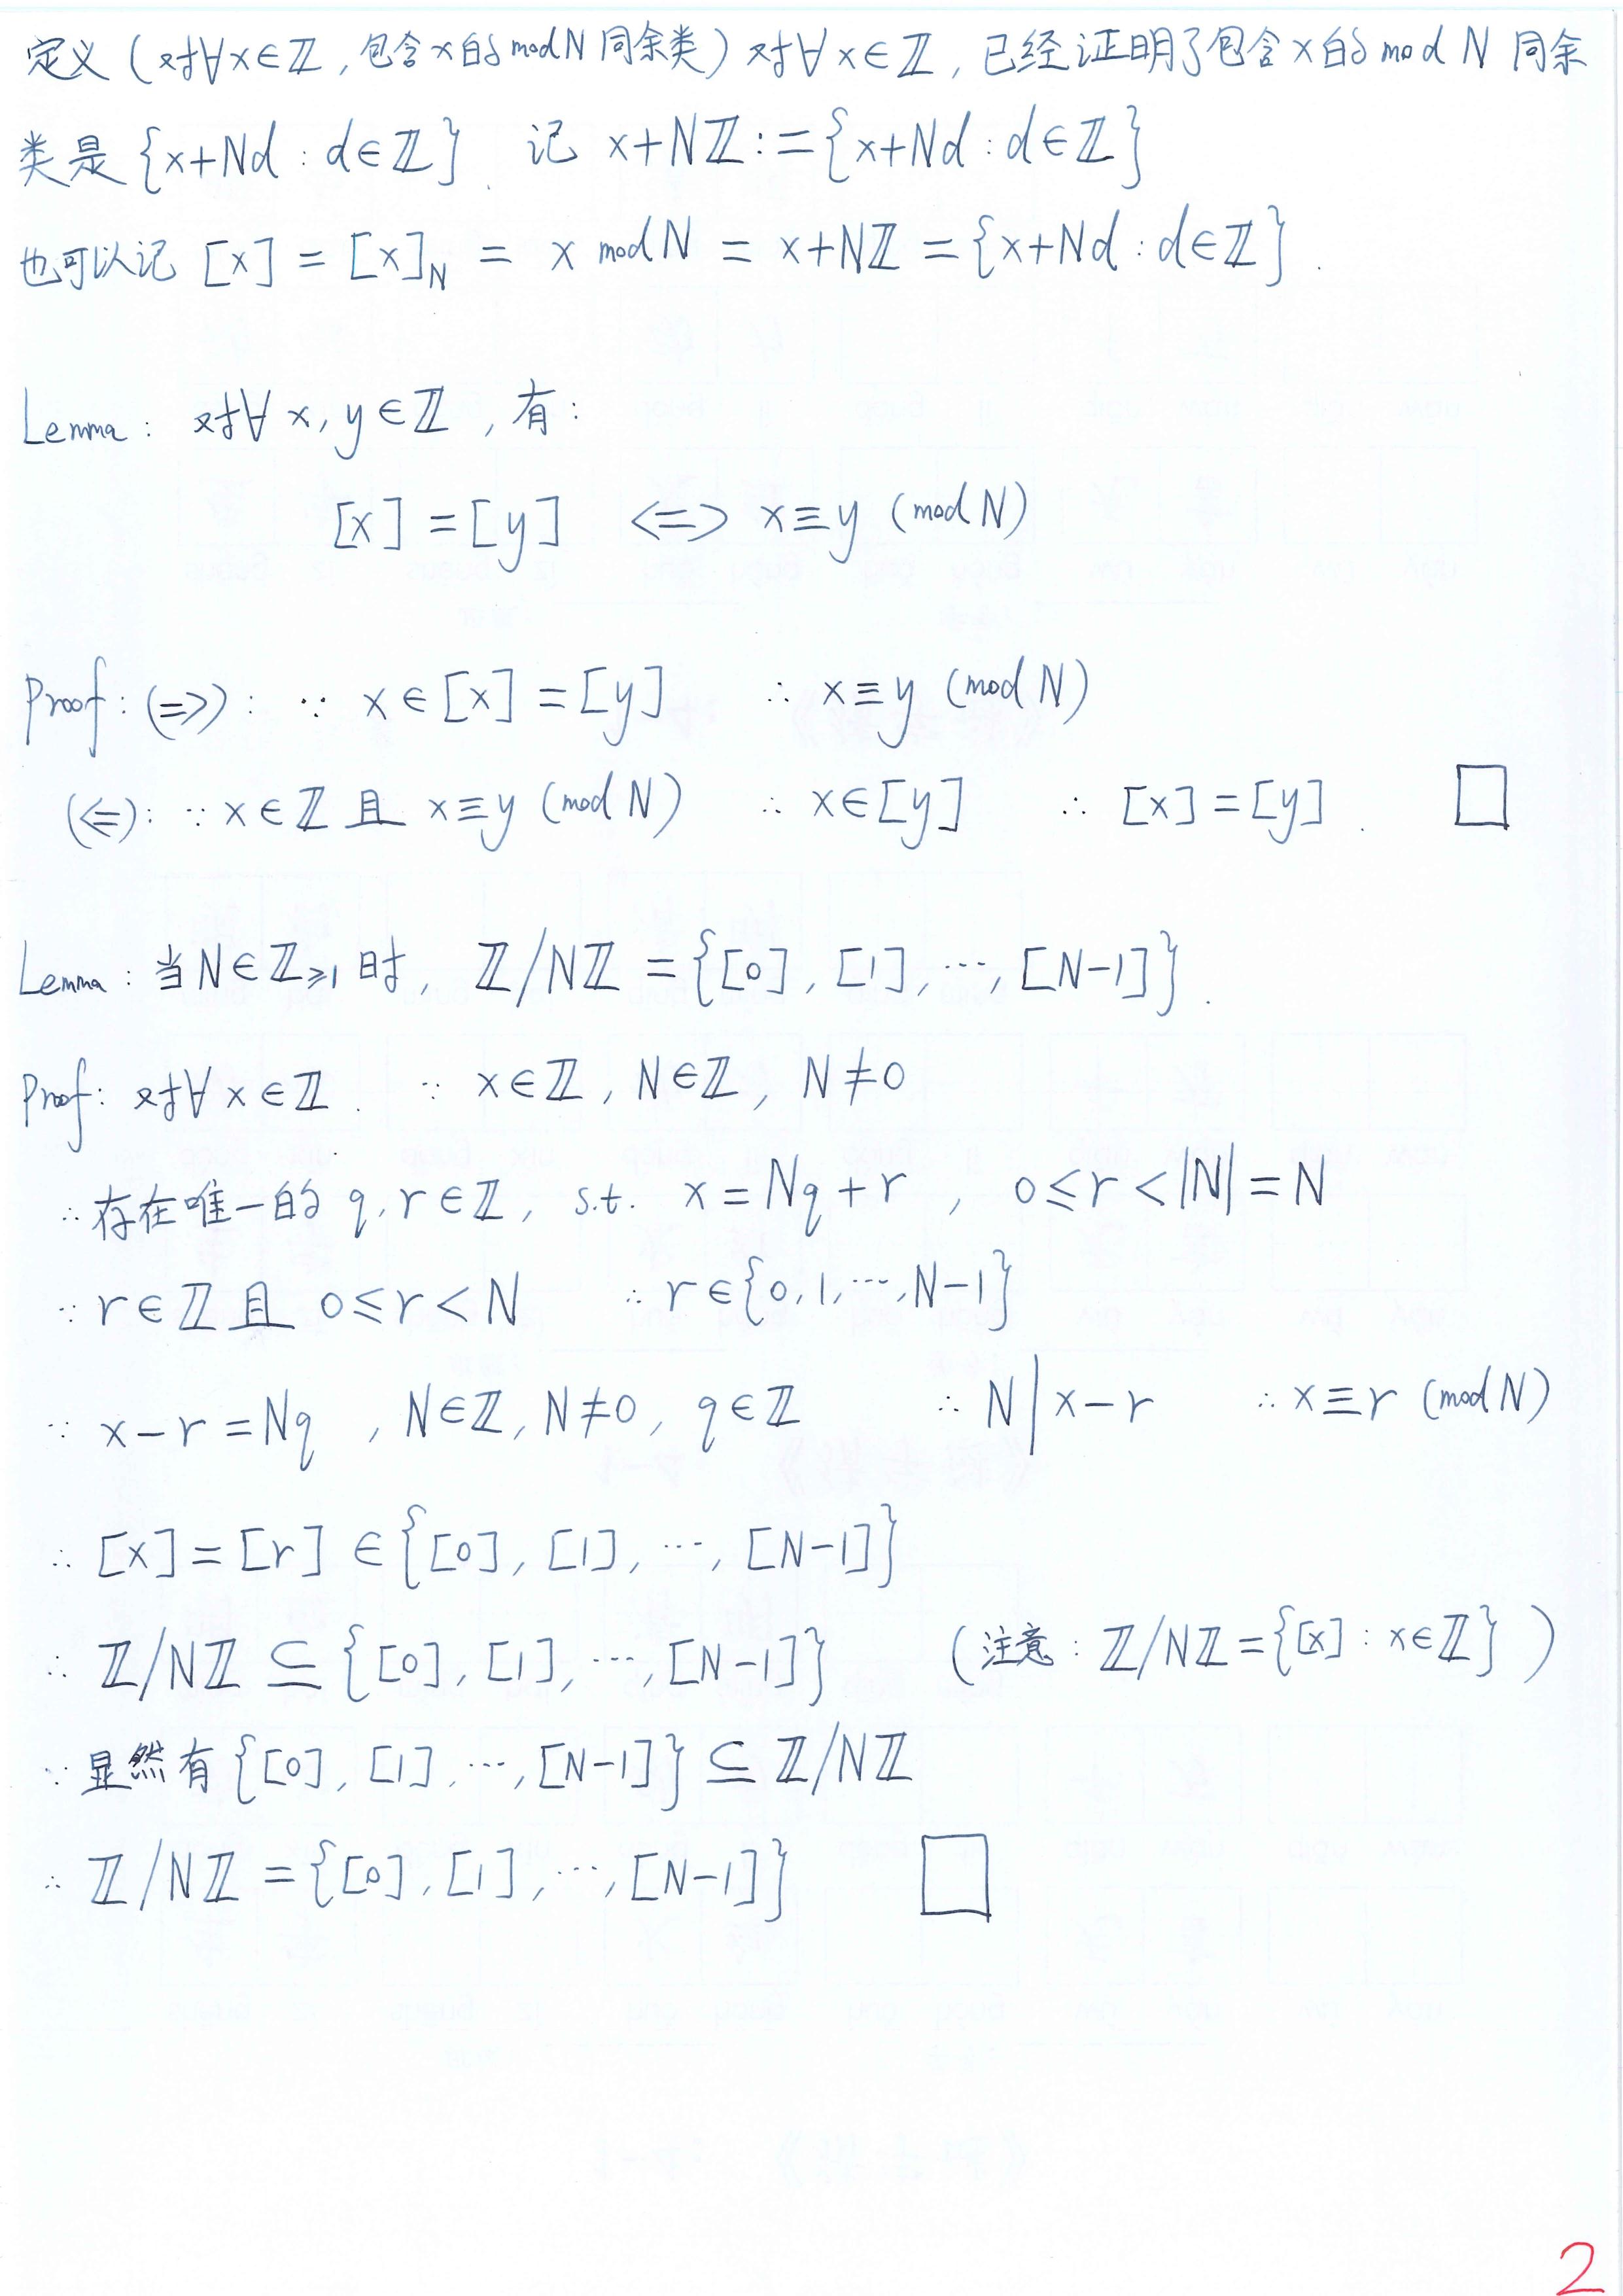 定义（对∀x∈ℤ，包含x的mod N同余类）对∀x∈ℤ，已经证明了包含x的mod N同余
类是{x+Nd : d∈ℤ}. 记 x+Nℤ:={x+Nd : d∈ℤ}
也可以记 [x] = [x]_N = x mod N = x+Nℤ = {x+Nd : d∈ℤ}.
Lemma: 对∀x,y∈ℤ, 有:
[x] = [y] <=> x≡y (mod N)
Proof: (=>): ∵ x∈[x]=[y] ∴ x≡y (mod N)
(<=): ∵ x∈ℤ 且 x≡y (mod N) ∴ x∈[y] ∴ [x]=[y]. □
Lemma: 当N∈ℤ≥1时, ℤ/Nℤ = {[0], [1], ⋯, [N-1]}.
Proof: 对∀x∈ℤ. ∵ x∈ℤ, N∈ℤ, N≠0
∴ 存在唯一的 q, r∈ℤ, s.t. x = Nq + r , 0≤r<|N|=N
∵ r∈ℤ 且 0≤r<N ∴ r∈{0,1,⋯,N-1}
∵ x-r=Nq , N∈ℤ, N≠0, q∈ℤ ∴ N | x-r ∴ x≡r (mod N)
∴ [x]=[r] ∈{[0], [1], ⋯, [N-1]}
∴ ℤ/Nℤ ⊆ {[0], [1], ⋯, [N-1]} (注意: ℤ/Nℤ={[x] : x∈ℤ})
∵ 显然有{[0], [1], ⋯, [N-1]} ⊆ ℤ/Nℤ
∴ ℤ/Nℤ = {[0], [1], ⋯, [N-1]} □
2